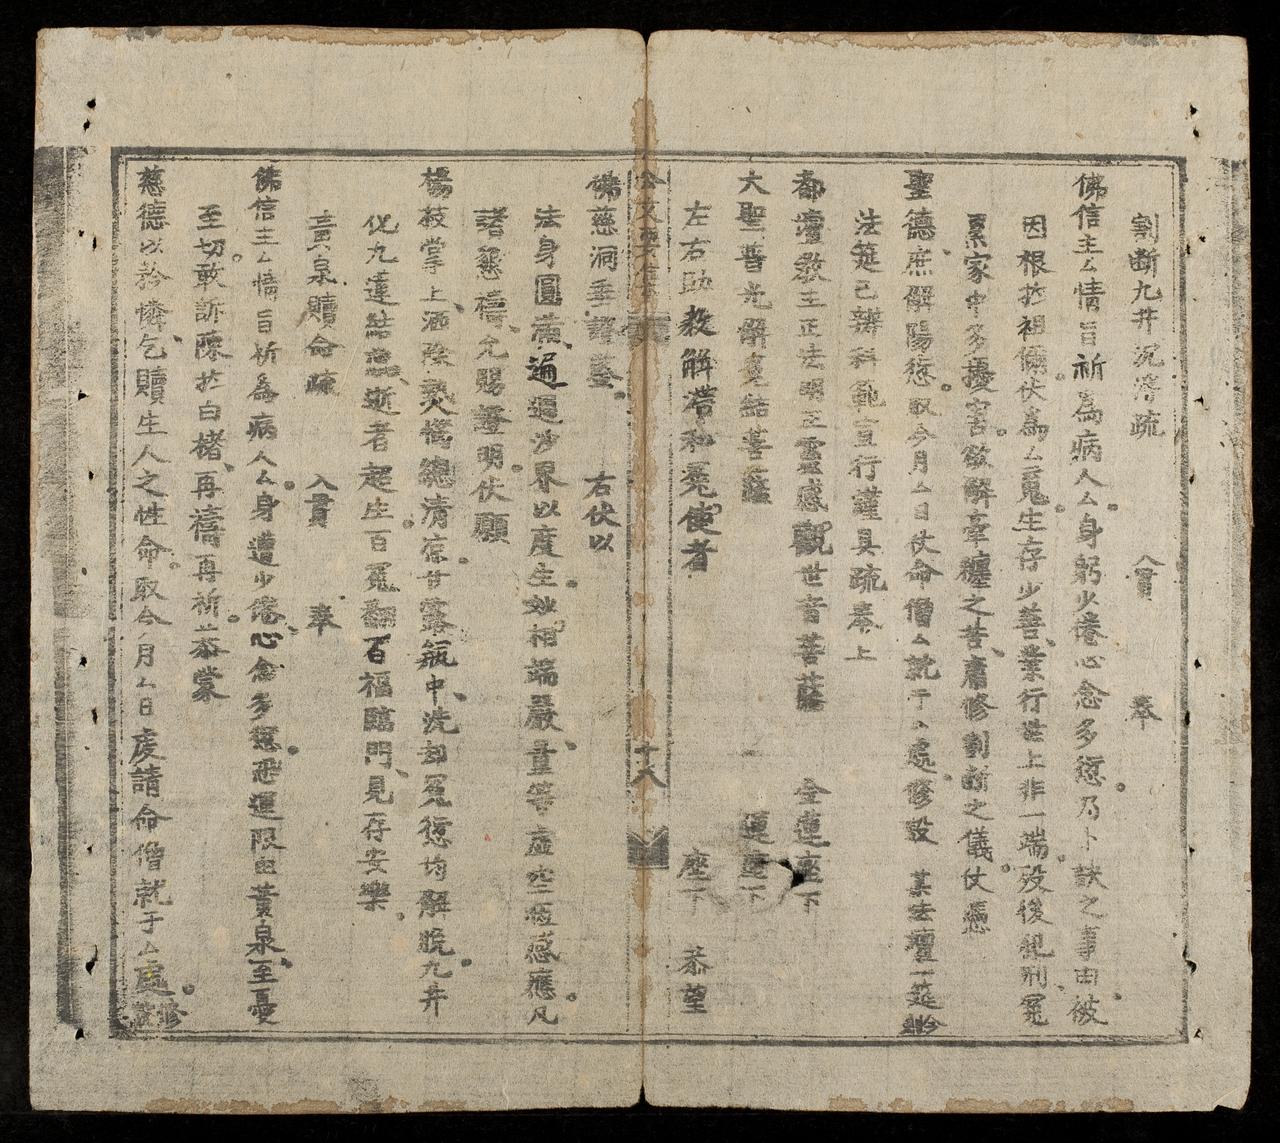 割断九井沉溺疏 入貫 奉
佛信主厶情旨祈為病人厶身躬少痊心念多愆乃卜訣之事由被
因根於祖伏為厶冤生存少善業行世上非一端殁後犯刑冤
累家中多擾害欲解牽纏之苦庸修割断之儀仗憑
聖德庶解陽愆取今月厶日仗命僧厶就于厶處修設 某法壇一筵
法筵已辦科範宣行謹具疏奉上
都壇教主正法明王靈感觀世音菩薩 金蓮座下
大聖普光解冤結菩薩 蓮座下
左右助教解滞和冤使者 座下 恭望
佛慈洞垂證鑒 右伏以
法身圓滿遍週沙界以度生妙相端嚴量等虛空恆感應凡
諸懇禱允賜證明伏願
楊枝掌上洒除熱惱總清凉甘露瓶中洗却冤愆均解脱九井
化九蓮結逝者起生百冤翻百福臨門見存安樂
黃泉贖命疏 入貫 奉
佛信主厶情旨祈為病人厶身遭少痊心念多冤恐運限由黃泉至憂
至切敢訴陳於白楮再濤再祈恭蒙
慈德以矜憐乞贖生人之性命取今月厶日虔請命僧就于厶處修設
十八